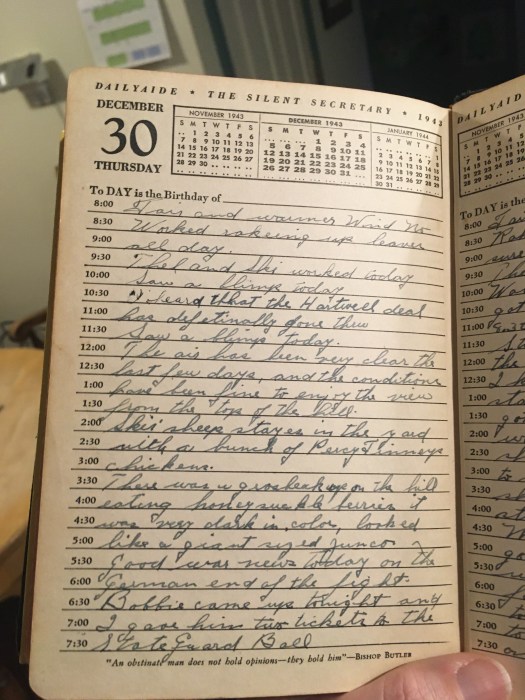 DAILYAIDE * THE SILENT SECRETARY * 1943
DECEMBER
30
THURSDAY
NOVEMBER 1943
S M T W T F S
.. 1 2 3 4 5 6
7 8 9 10 11 12 13
14 15 16 17 18 19 20
21 22 23 24 25 26 27
28 29 30 .. .. .. ..
DECEMBER 1943
S M T W T F S
.. .. .. 1 2 3 4
5 6 7 8 9 10 11
12 13 14 15 16 17 18
19 20 21 22 23 24 25
26 27 28 29 30 31 ..
JANUARY 1944
S M T W T F S
To DAY is the Birthday of
8:00 Fair and warmer Wind No
8:30 Worked rakeing up leaves
9:00 all day.
9:30 Thel and Ski worked today
10:00 Saw a blimp today
10:30 Heard that the Hartwell deal
11:00 has defetinally gone thru
11:30 Saw a blimp today.
12:00 The air has been very clear the
12:30 last few days, and the conditions
1:00 have been fine to enjoy the view
1:30 from the top of the hill.
2:00 Skis sheep stayes in the yard
2:30 with a bunch of Percy Tinneys
3:00 chickens.
3:30 There was a grosbeak on the hill
4:00 eating honeysuckle berries it
4:30 was very dark in color, looked
5:00 like a giant sized junco
5:30 Good war news today on the
6:00 German end of the fight.
6:30 Bobbie came up tonight and
7:00 I gave him two tickets to the
7:30 State Guard Ball
"An obstinate man does not hold opinions—they hold him"—BISHOP BUTLER
DAILYAID
NOVEMBER 1943
To DAY is the
8:00
8:30
9:00
9:30
10:00
10:30
11:00
11:30
12:00
12:30
1:00
1:30
2:00
2:30
3:00
3:30
4:00
4:30
5:00
5:30
6:00
6:30
7:00
7:30